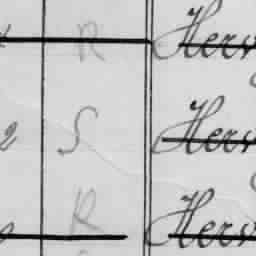 R Herv
2 S Herv
R Herv